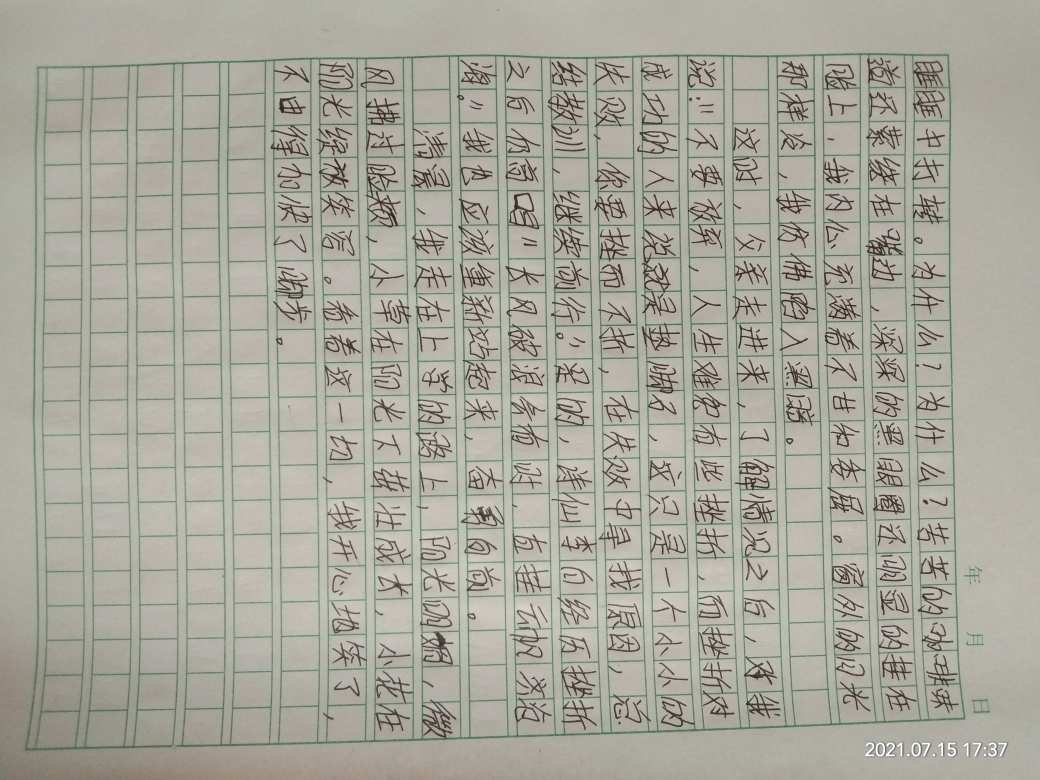 年 月 日
眶中打转。为什么？为什么？苦苦的咖啡味
道还萦绕在嘴边，深深的黑眼圈还明显的挂在
脸上，我内心充满着不甘和委屈。窗外的闪光
那样冷，我仿佛陷入黑暗。
这时，父亲走进来，了解情况之后，对我
说："不要放弃，人生难免有些挫折，而挫折对
成功的人来说就是垫脚石，这只是一个小小的
失败，你要挫而不折，在失败中寻找原因，总
结教训，继续前行。"是的，诗仙李白经历挫折
之后仍高唱"长风破浪会有时，直挂云帆济沧
海。"我也应该重新站起来，奋勇向前。
清晨，我走在上学的路上，阳光明媚，微
风拂过脸颊，小草在阳光下茁壮成长，小花在
阳光绽放笑容。看着这一切，我开心地笑了，
不由得加快了脚步。
2021.07.15 17:37